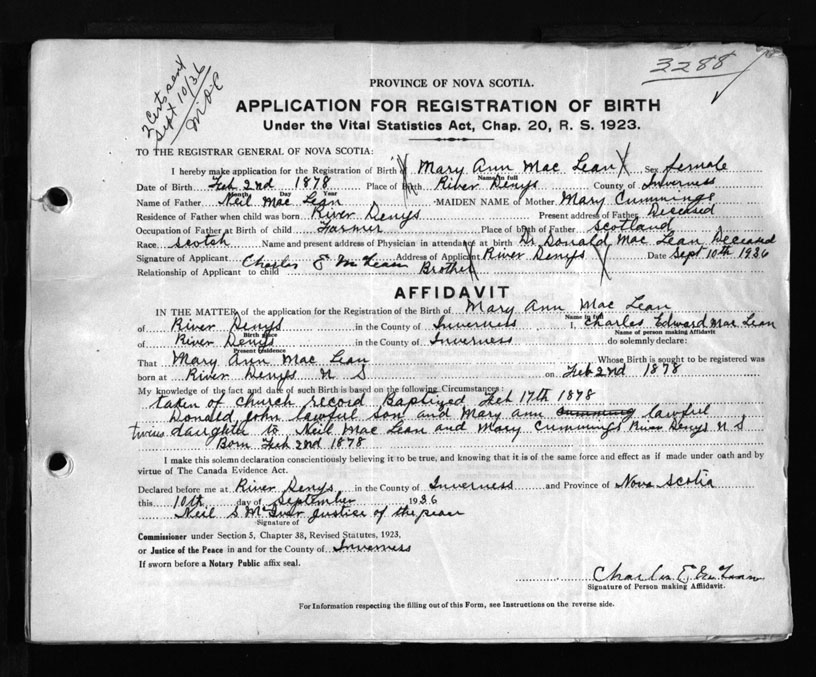 3288
2 Certs sent
Sept 10/36
PROVINCE OF NOVA SCOTIA.
APPLICATION FOR REGISTRATION OF BIRTH
Under the Vital Statistics Act, Chap. 20, R. S. 1923.
TO THE REGISTRAR GENERAL OF NOVA SCOTIA:
I hereby make application for the Registration of Birth Mary Ann Mac Lean Sex female
Name in full
Date of Birth Feb 2nd 1878 Place of Birth River Denys County of Inverness
Month Day Year
Name of Father Neil Mac Lean MAIDEN NAME of Mother Mary Cummings
Residence of Father when child was born River Denys Present address of Father Deceased
Occupation of Father at Birth of child Farmer Place of birth of Father Scotland
Race Scotch Name and present address of Physician in attendance at birth Dr Donald Mac Lean Deceased
Signature of Applicant Charles E McLean Address of Applicant River Denys Date Sept 10th 1936
Relationship of Applicant to child Brother
AFFIDAVIT
IN THE MATTER of the application for the Registration of the Birth of Mary Ann Mac Lean
Name in full
of River Denys in the County of Inverness I, Charles Edward Mac Lean
Birth place Name of person making Affidavit
of River Denys in the County of Inverness do solemnly declare:
Present residence
That Mary Ann Mac Lean Whose Birth is sought to be registered was
born at River Denys N S on Feb 2nd 1878
My knowledge of the fact and date of such Birth is based on the following Circumstances:
taken of Church record Baptized Feb 17th 1878
Donald John lawful son and Mary Ann Cumming lawful
twins daughter to Neil Mac Lean and Mary Cummings River Denys N S
Born Feb 2nd 1878
I make this solemn declaration conscientiously believing it to be true, and knowing that it is of the same force and effect as if made under oath and by
virtue of The Canada Evidence Act.
Declared before me at River Denys in the County of Inverness and Province of Nova Scotia
this 10th day of September 1936
Neil S McIver Justice of the peace
Signature of
Commissioner under Section 5, Chapter 38, Revised Statutes, 1923,
or Justice of the Peace in and for the County of Inverness
If sworn before a Notary Public affix seal.
Charles E McLean
Signature of Person making Affidavit.
For Information respecting the filling out of this Form, see Instructions on the reverse side.